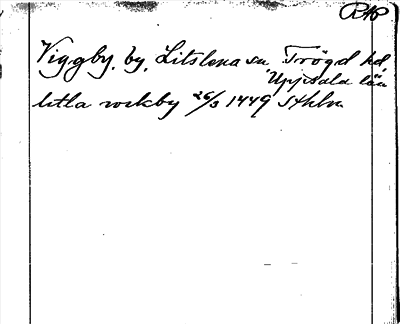 RAP
Viggby, by, Litslena sn Trögd hd,
Uppsala län
litla wikby 26/3 1449 Sthlm